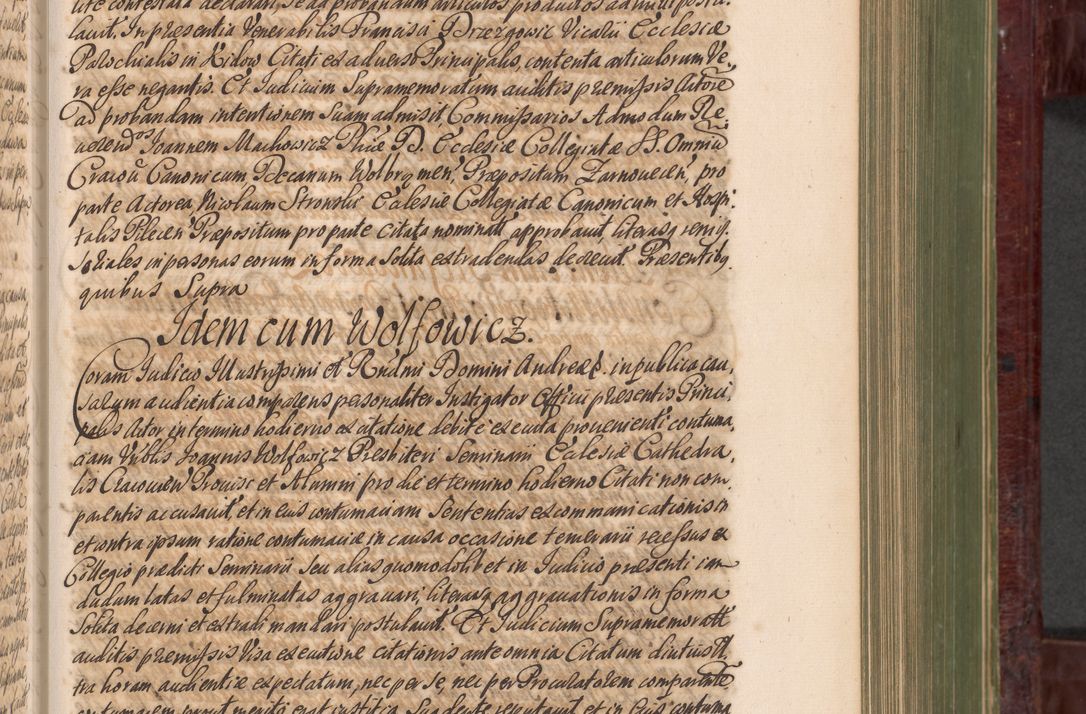 lite contestata declarari, se ad probandum articulos productos admitti postu,
lavit. In præsentia Venerabilis Francisci Brzezgowic Vicarii Ecclesiæ
Parochialis in Kidow Citati ex adverso Principalis, contenta articulorum Ve,
ra esse negantis. Et Judicium Supramemoratum auditis præmissis Actorē
ad probandam intentionem Suam admisit Commissarios Admodum Re,
verendos Joannem Machowicz Phiæ D. Ecclesiæ Collegiatæ SS. Omniū
Cracov̄ Canonicum Decanum Wolbromen, Præpositum Zarnovecen, pro
parte Actorea Nicolaum Stronski Ecclesiæ Collegiatæ Canonicum et Hospi,
talis Pilecen Præpositum pro parte Citata nominatt approbavit literasq remis,
soriales in personas eorum in forma Solita extradendas decrevit. Præsentibq
quibus Supra
Idem cum Wolfowicz.
Coram Judicio Illustrissimi et Rndmi Domini Andreæ E. in publica cau,
sarum audientia comparens personaliter Instigator Officii præsentis Princi,
palis Actor in termino hodierno ex citatione debite executa provenienti contuma,
ciam Vnblis Joannis Wolfowicz Presbiteri Seminarii Ecclesiæ Cathedra,
lis Cracovien Provisi et Alumni pro die et termino hodierno Citati non com,
parentis accusavit, et in eius contumaciam Sententias excommunicationis in
et contra ipsum ratione contumaciæ in causa occasione temerarii recessus ex
Collegio prædicti Seminarii Seu alias quomodolibet et in Judicio præsenti iam
dudum latas et fulminatas aggravari, literasq aggravationis in forma
Solita decerni et extradi mandari postulavit. Et Judicium Supramemoratt
auditis præmissis Visa executione citationis ante omnia Citatum diutius Vl,
tra horam audientiæ expectatum, nec per Se, nec per Procuratorem comparentē
contumacem prout merito erat iustitia Suadente reputavit et in eius contuma